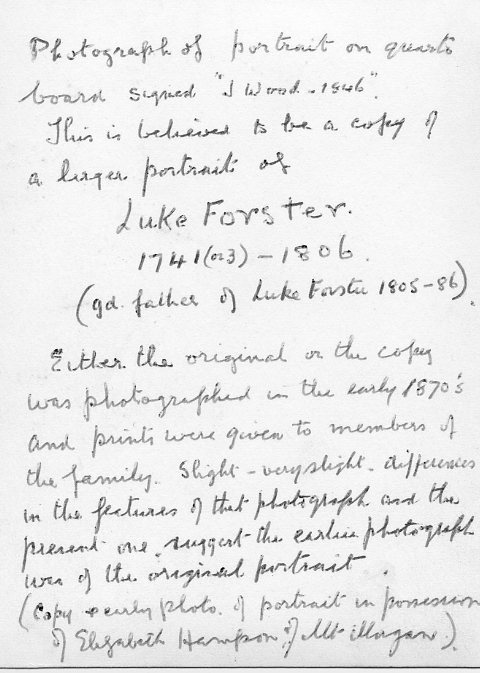 Photograph of portrait on quarto
board signed "J Wood - 1846".
This is believed to be a copy of
a larger portrait of
Luke Forster.
1741 (or 3) - 1806.
(gd. father of Luke Forster 1805-86).
Either the original or the copy
was photographed in the early 1870's
and prints were given to members of
the family. Slight - very slight - differences
in the features of that photograph and the
present one, suggest the earlier photograph
was of the original portrait.
(Copy & early photo. of portrait in possession
of Elizabeth Hampson, of Mt Morgan.).